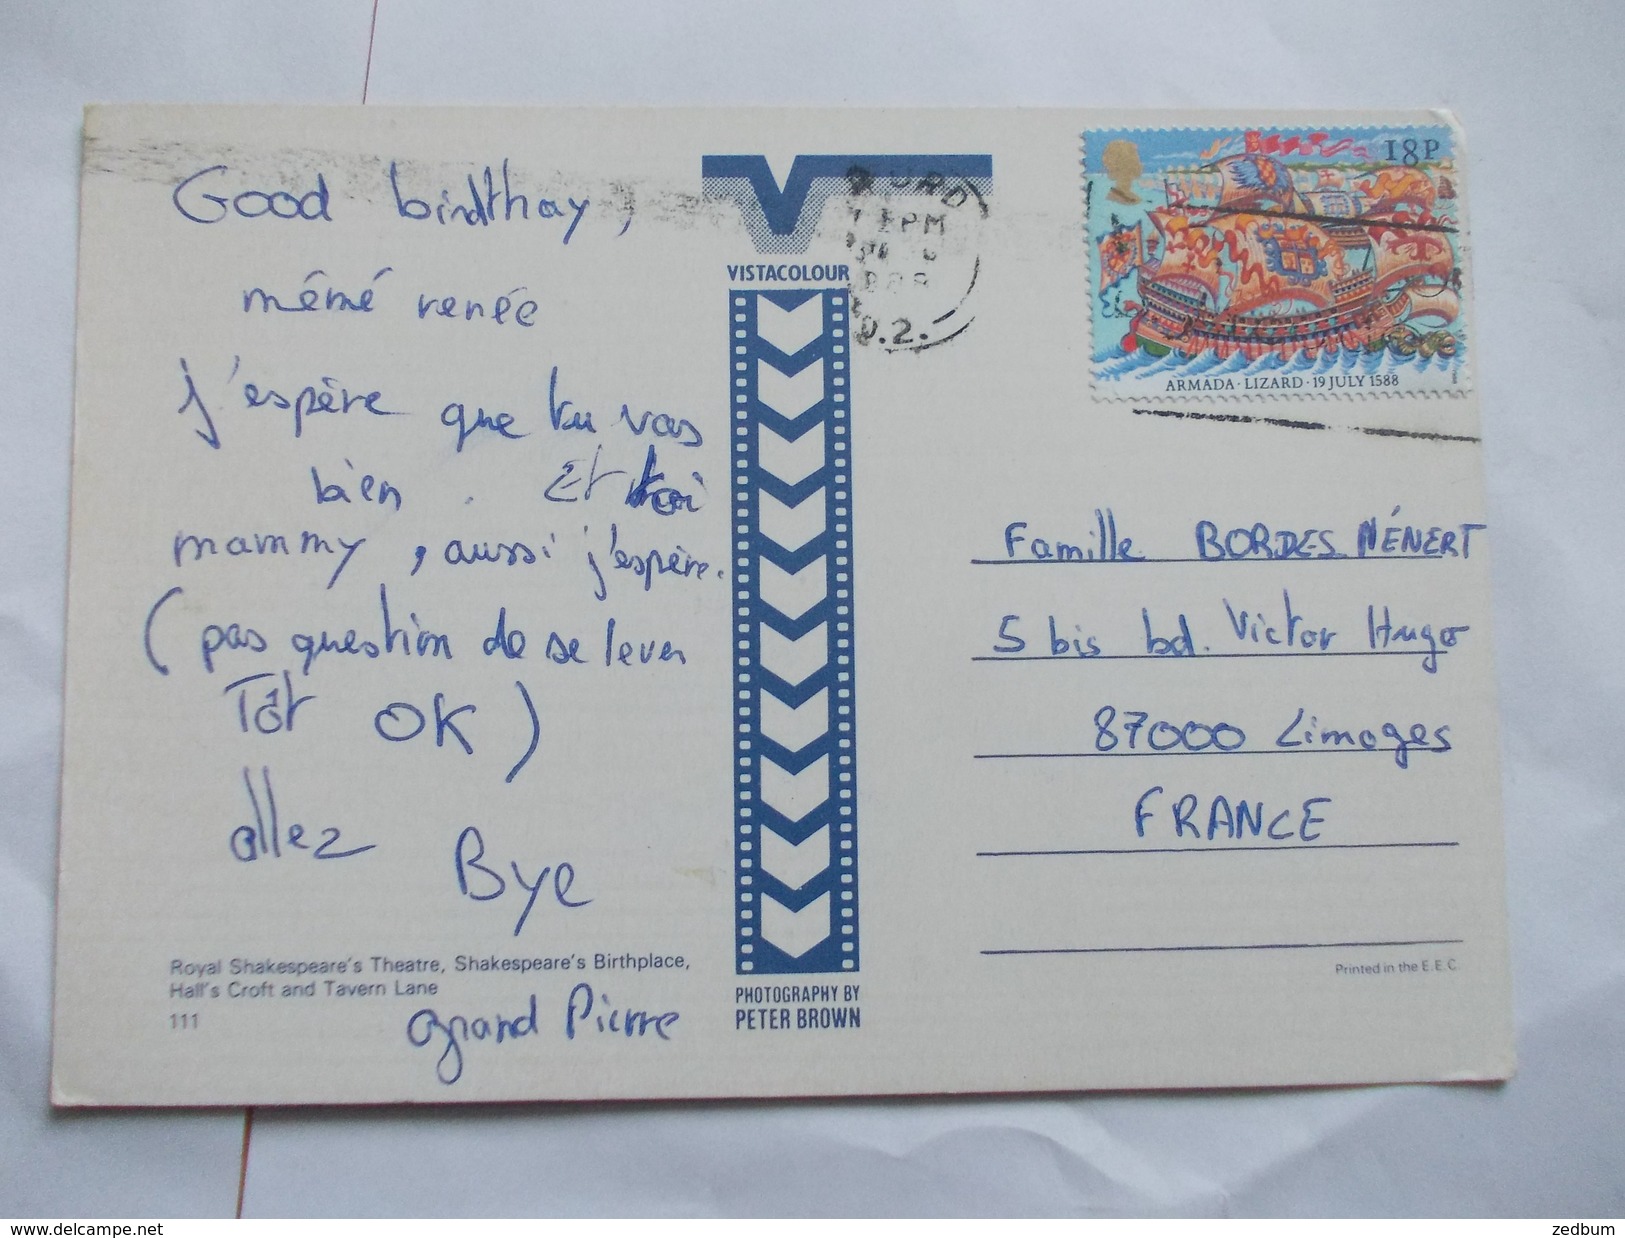 Good birdthay,
mémé renée
j'espère que tu vas
bien. Et toi
mammy, aussi j'espère.
(pas question de se lever
Tôt OK)
allez
Bye
Royal Shakespeare's Theatre, Shakespeare's Birthplace,
Hall's Croft and Tavern Lane
111
grand Pierre
VISTACOLOUR
PHOTOGRAPHY BY
PETER BROWN
PM
18P
ARMADA · LIZARD · 19 JULY 1588
Famille BORDES NÉNERT
5 bis bd. Victor Hugo
87000 Limoges
FRANCE
Printed in the E.E.C.
www.delcampe.net
zedbum